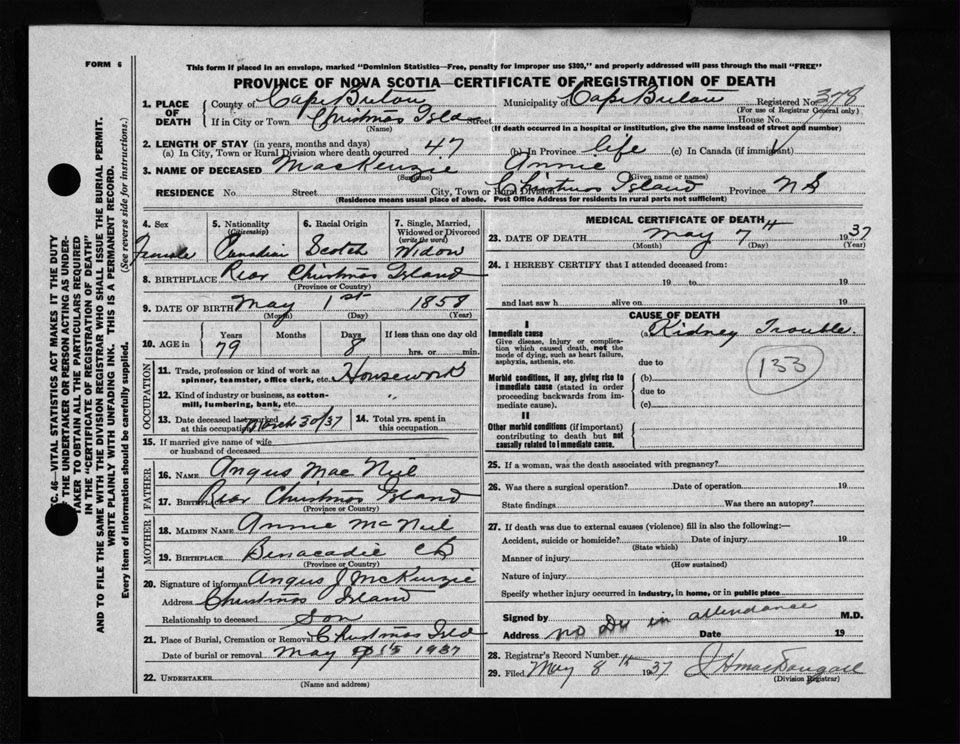 FORM 6
This form if placed in an envelope, marked "Dominion Statistics—Free, penalty for improper use $300," and properly addressed will pass through the mail "FREE"
PROVINCE OF NOVA SCOTIA—CERTIFICATE OF REGISTRATION OF DEATH
1. PLACE OF DEATH County of Cape Breton Municipality of Cape Breton Registered No. 378
(For use of Registrar General only)
If in City or Town Christmas Isld Street House No.
(Name) (If death occurred in a hospital or institution, give the name instead of street and number)
2. LENGTH OF STAY (in years, months and days)
(a) In City, Town or Rural Division where death occurred 47 (b) In Province life (c) In Canada (if immigrant)
3. NAME OF DECEASED MacKenzie Annie
(Surname) (Given name or names)
RESIDENCE No. Street City, Town or Rural Division Christmas Island Province N S
(Residence means usual place of abode. Post Office Address for residents in rural parts not sufficient)
4. Sex 5. Nationality (Citizenship) 6. Racial Origin 7. Single, Married, Widowed or Divorced (write the word)
Female Canadian Scotch Widow
8. BIRTHPLACE Rear Christmas Island
(Province or Country)
9. DATE OF BIRTH May 1st 1858
(Month) (Day) (Year)
10. AGE in Years Months Days If less than one day old
79 8 hrs. or min.
OCCUPATION
11. Trade, profession or kind of work as spinner, teamster, office clerk, etc. Housework
12. Kind of industry or business, as cotton-mill, lumbering, bank, etc. "
13. Date deceased last worked at this occupation March 30/37 14. Total yrs. spent in this occupation
15. If married give name of wife or husband of deceased
FATHER
16. NAME Angus Mac Neil
17. BIRTHPLACE Rear Christmas Island
(Province or Country)
MOTHER
18. MAIDEN NAME Annie McNeil
19. BIRTHPLACE Benacadie CB
(Province or Country)
20. Signature of informant Angus J McKenzie
Address Christmas Island
Relationship to deceased Son
21. Place of Burial, Cremation or Removal Christmas Isld
Date of burial or removal May 1937
22. UNDERTAKER
(Name and address)
MEDICAL CERTIFICATE OF DEATH
23. DATE OF DEATH May 7th 1937
(Month) (Day) (Year)
24. I HEREBY CERTIFY that I attended deceased from:
19 to 19
and last saw h alive on 19
CAUSE OF DEATH
I
Immediate cause (a) Kidney Trouble.
Give disease, injury or complication which caused death, not the mode of dying, such as heart failure, asphyxia, asthenia, etc.
due to
133
Morbid conditions, if any, giving rise to immediate cause (stated in order proceeding backwards from immediate cause).
(b)
due to
(c)
II
Other morbid conditions (if important) contributing to death but not causally related to immediate cause.
25. If a woman, was the death associated with pregnancy?
26. Was there a surgical operation? Date of operation 19
State findings Was there an autopsy?
27. If death was due to external causes (violence) fill in also the following:—
Accident, suicide or homicide? Date of injury 19
(State which)
Manner of injury
(How sustained)
Nature of injury
Specify whether injury occurred in industry, in home, or in public place
Signed by M.D.
no Dr in attendance
Address Date 19
28. Registrar's Record Number
29. Filed May 8th 1937 J H MacDougall
(Division Registrar)
SEC. 46—VITAL STATISTICS ACT MAKES IT THE DUTY
OF THE UNDERTAKER OR PERSON ACTING AS UNDER-
TAKER TO OBTAIN ALL THE PARTICULARS REQUIRED
IN THE "CERTIFICATE OF REGISTRATION OF DEATH"
AND TO FILE THE SAME WITH THE DIVISION REGISTRAR WHO SHALL ISSUE THE BURIAL PERMIT.
WRITE PLAINLY WITH UNFADING INK. THIS IS A PERMANENT RECORD.
Every item of information should be carefully supplied. (See reverse side for instructions.)